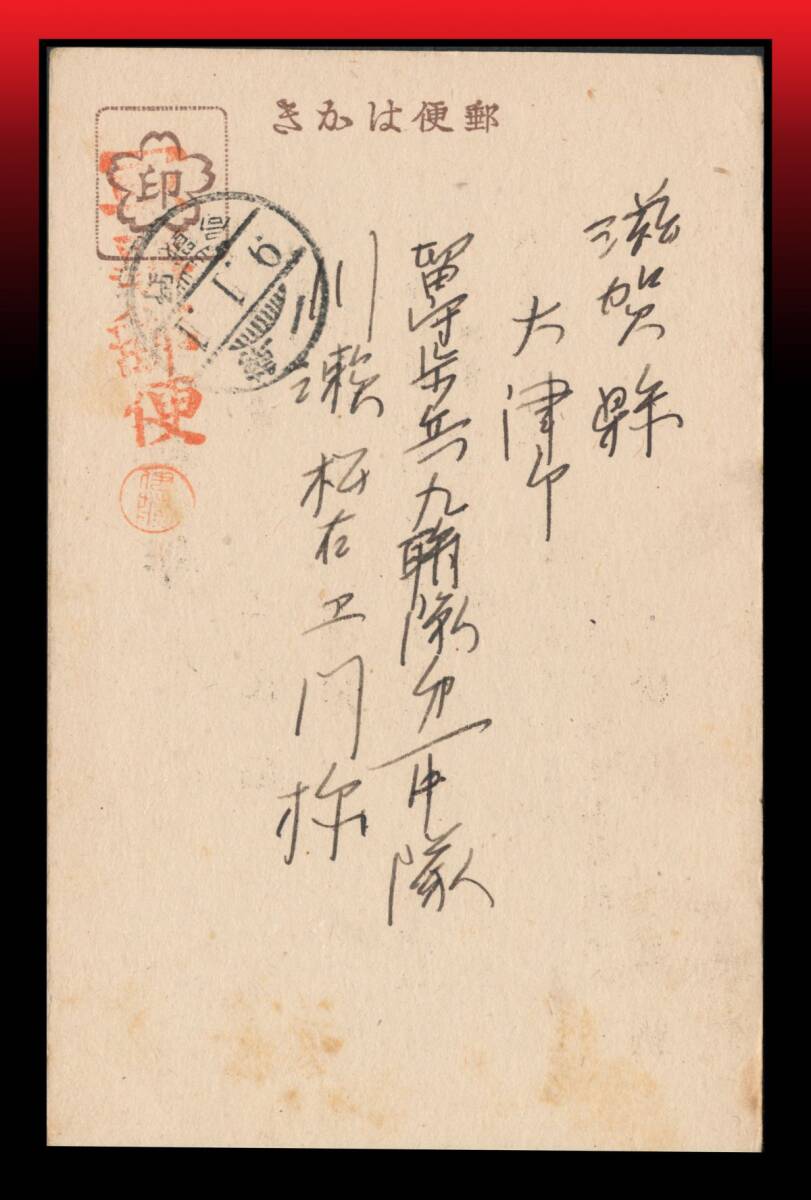 郵便はかき
滋賀縣
大津市
留守歩兵九聯隊第一中隊
川瀬松右エ門様
印
軍事郵便
9.1.1